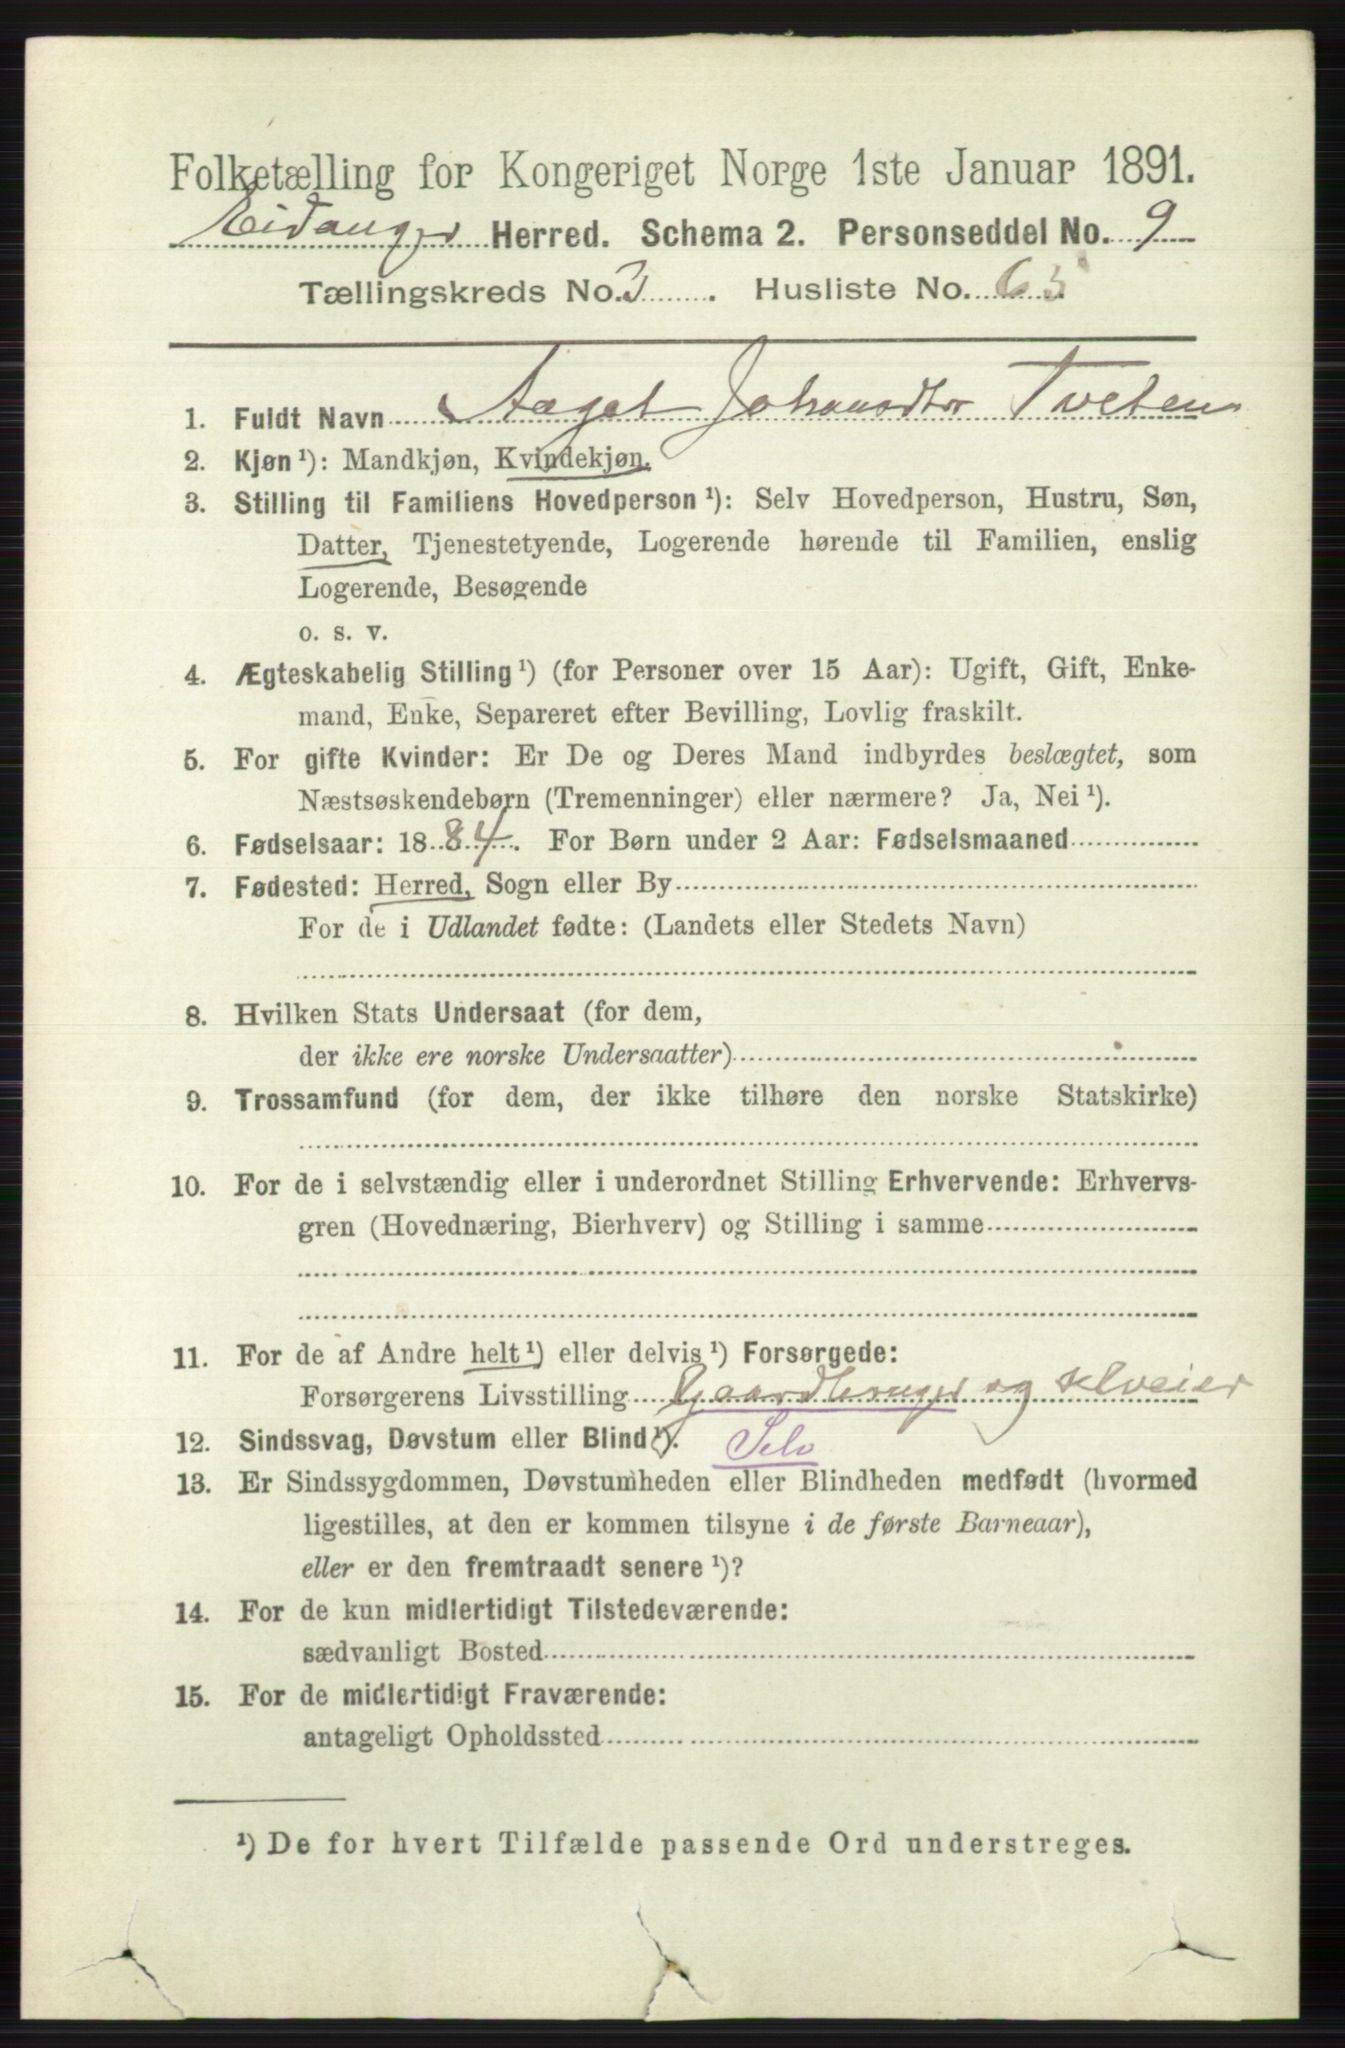 Folketælling for Kongeriget Norge 1ste Januar 1891.
Eidanger Herred. Schema 2. Personseddel No. 9
Tællingskreds No. 3. Husliste No. 63.
1. Fuldt Navn Aagot Johansdtr Tveten
2. Kjøn ¹): Mandkjøn, Kvindekjøn.
3. Stilling til Familiens Hovedperson ¹): Selv Hovedperson, Hustru, Søn,
Datter, Tjenestetyende, Logerende hørende til Familien, enslig
Logerende, Besøgende
o. s. v.
4. Ægteskabelig Stilling ¹) (for Personer over 15 Aar): Ugift, Gift, Enke-
mand, Enke, Separeret efter Bevilling, Lovlig fraskilt.
5. For gifte Kvinder: Er De og Deres Mand indbyrdes beslægtet, som
Næstsøskendebørn (Tremenninger) eller nærmere? Ja, Nei ¹).
6. Fødselsaar: 1884. For Børn under 2 Aar: Fødselsmaaned
7. Fødested: Herred, Sogn eller By
For de i Udlandet fødte: (Landets eller Stedets Navn)
8. Hvilken Stats Undersaat (for dem,
der ikke ere norske Undersaatter)
9. Trossamfund (for dem, der ikke tilhøre den norske Statskirke)
10. For de i selvstændig eller i underordnet Stilling Erhvervende: Erhvervs-
gren (Hovednæring, Bierhverv) og Stilling i samme
11. For de af Andre helt ¹) eller delvis ¹) Forsørgede:
Forsørgerens Livsstilling Gaardbruger og selveier
12. Sindssvag, Døvstum eller Blind ¹). Selv
13. Er Sindssygdommen, Døvstumheden eller Blindheden medfødt (hvormed
ligestilles, at den er kommen tilsyne i de første Barneaar),
eller er den fremtraadt senere ¹)?
14. For de kun midlertidigt Tilstedeværende:
sædvanligt Bosted
15. For de midlertidigt Fraværende:
antageligt Opholdssted
¹) De for hvert Tilfælde passende Ord understreges.